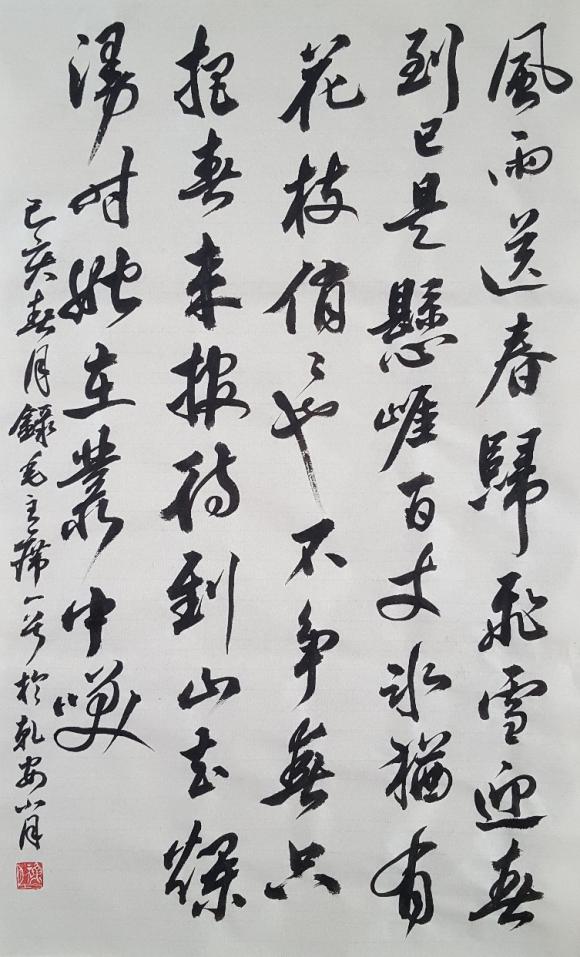 風雨送春歸飛雪迎春
到已是懸崖百丈冰猶有
花枝俏〻也不争春只
把春来报待到山花爛
漫时她在叢中咲
己亥春月錄毛主席一首於乾安小月